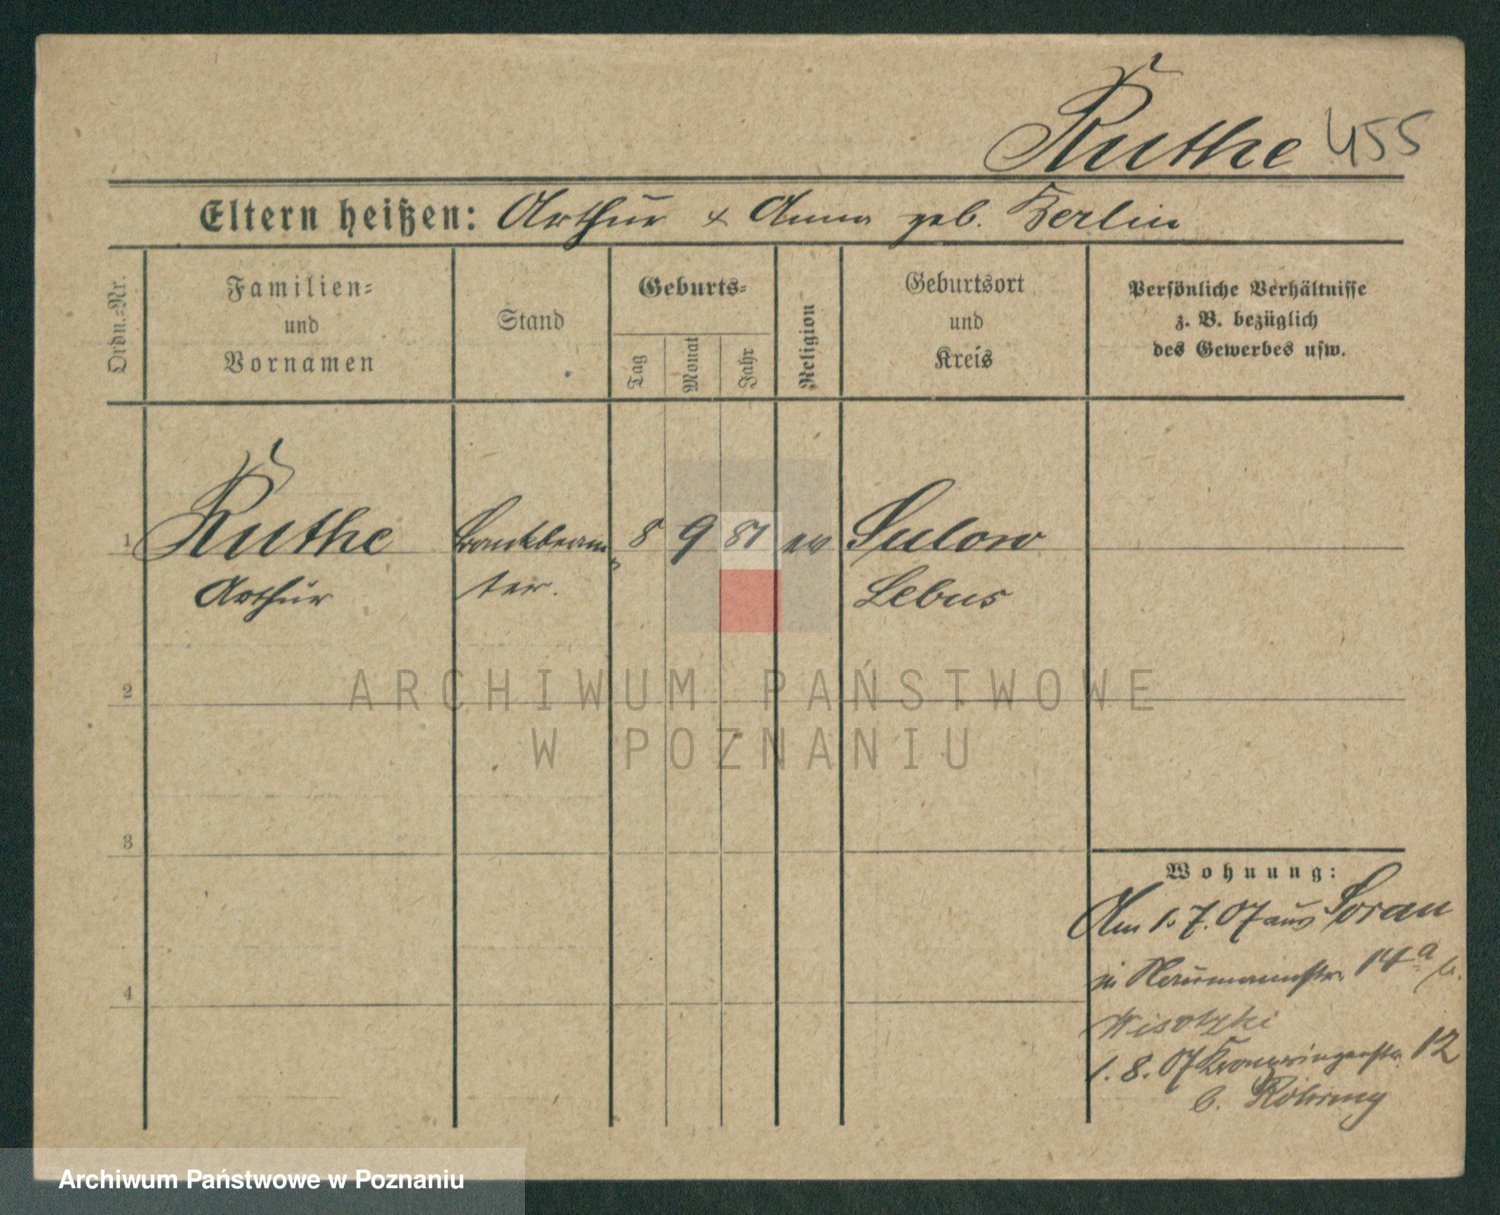 Ruthe 455
Eltern heißen: Arthur & Anna geb. Berlin
Ordn.-Nr.
Familien-
und
Vornamen
Stand
Geburts-
Tag
Monat
Jahr
Religion
Geburtsort
und
Kreis
Persönliche Verhältnisse
z. B. bezüglich
des Gewerbes usw.
1 Ruthe Bankbeam- 8 9 81 ev Sulow
Arthur ter. Lebus
2
ARCHIWUM PAŃSTWOWE
W POZNANIU
3
Wohnung:
Am 1.7.07 aus Sorau
in Naumannstr. 14a b.
Wisotzki
1.8.07 Kronprinzenstr. 12
b. Röhring
4
Archiwum Państwowe w Poznaniu